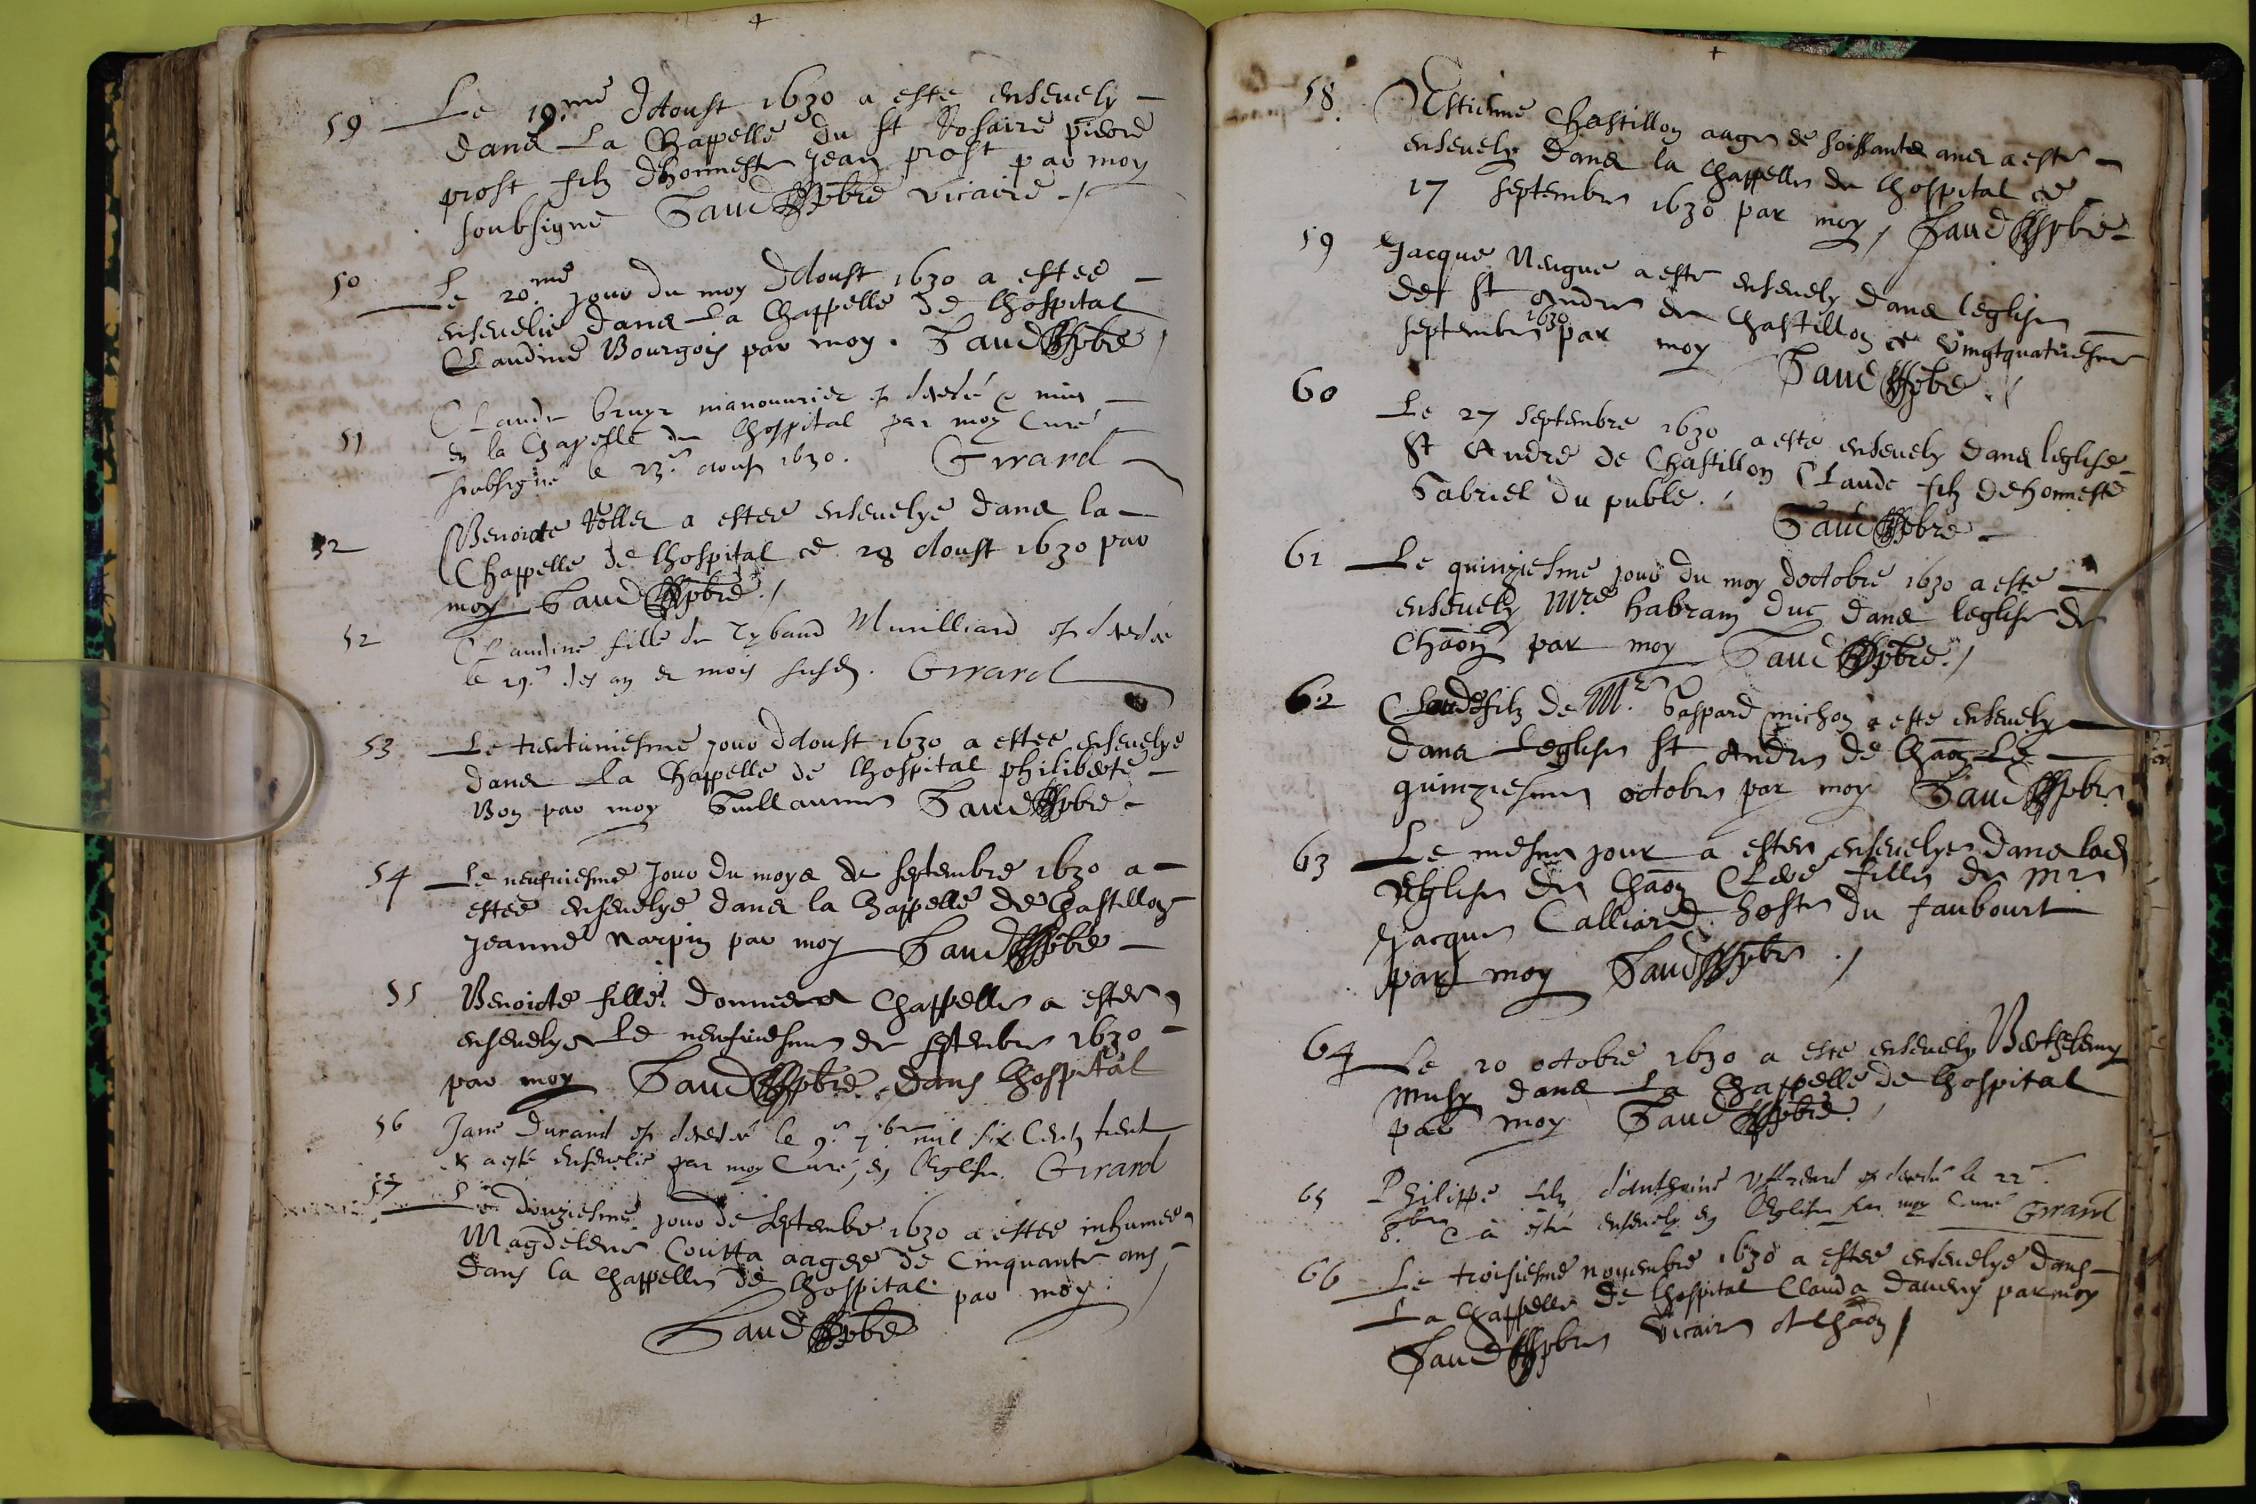 59 Le 19.me daoust 1630 a este ensevely
dans La Chappelle du St Rosaire pierre
prost filz dhonneste Jean prost par moy
soubsigne Saud pbre vicaire
50 Le 20.me jour du moy daoust 1630 a estee
ensevelie dans La Chappelle de lhospital
Claudine Bourgois par moy. Saud pbre
51 Claude bruyr manouvrier
en la Chapelle de lhospital par moy Curé
soubsigné le 23.e aoust 1630. Girard
52 Benoicte a estee ensevelye dans la
Chappelle de lhospital ce 28 doust 1630 par
moy Saud pbre
52 Claudine fille de Tybaud Murilliard est decedee
le 29.e des an et mois susd. Girard
53 Le trentuniesme jour daoust 1630 a estee ensevelye
dans La Chappelle de lhospital philiberte
Bon par moy Guillaume Saud pbre
54 Le neufviesme jour du moys de septembre 1630 a
estee ensevelye dans la Chappelle de Chastillon
Jeanne Narpin par moy Saud pbre
55 Benoicte fille Chappelle a estee
ensevelye Le neufviesme de septembre 1630
par moy Saud pbre dans lhospital
56 Jane Durand est decedee le 9.e 7bre mil six Centz trent
et a esté ensevelie par moy Curé, en lEglise. Girard
57 Le douziesme jour de septembre 1630 a estee inhumee
Magdeleine Coutta aagee de Cinquante ans
dans la Chappelle de lhospital par moy
Saud pbre
58. Estienne Chastillon aage de soissante ans a este
ensevely dans la Chappelle de lhospital ce
17 septembre 1630 par moy Saud pbre
59 Jacque Neugue a este ensevely dans leglise
de St Andre de Chastillon ce vingtquatriesme
septembre 1630 par moy Saud pbre
60 Le 27 septembre 1630 a este ensevely dans leglise
St Andre de Chastillon Claude filz de honneste
Gabriel du puble. Saud pbre
61 Le quinziesme jour du moy doctobre 1630 a este
ensevely Mre habram duc dans leglise de
Chaon par moy Saud pbre
62 Claude filz de Mr Gaspard michon a este ensevely
dans Leglise St Andre de Chaon Le
quinziesme octobre par moy Saud pbre
63 Le mesme jour a estee ensevelye dans lad
Eglise de Chaon fille de mre
Jacque Calliard hoste du faubourt
par moy Saud pbre
64 Le 20 octobre 1630 a este ensevely Berthelemy
musy dans La Chappelle de lhospital
par moy Saud pbre
65 Philippe filz dAnthoine est decedé le 22.e
8.bre à esté ensevely en lEglise par moy Curé Girard
66 Le troisiesme novembre 1630 a estee ensevelye dans
La Chappelle de lhospital Clauda par moy
Saud pbre vicaire de Chaon